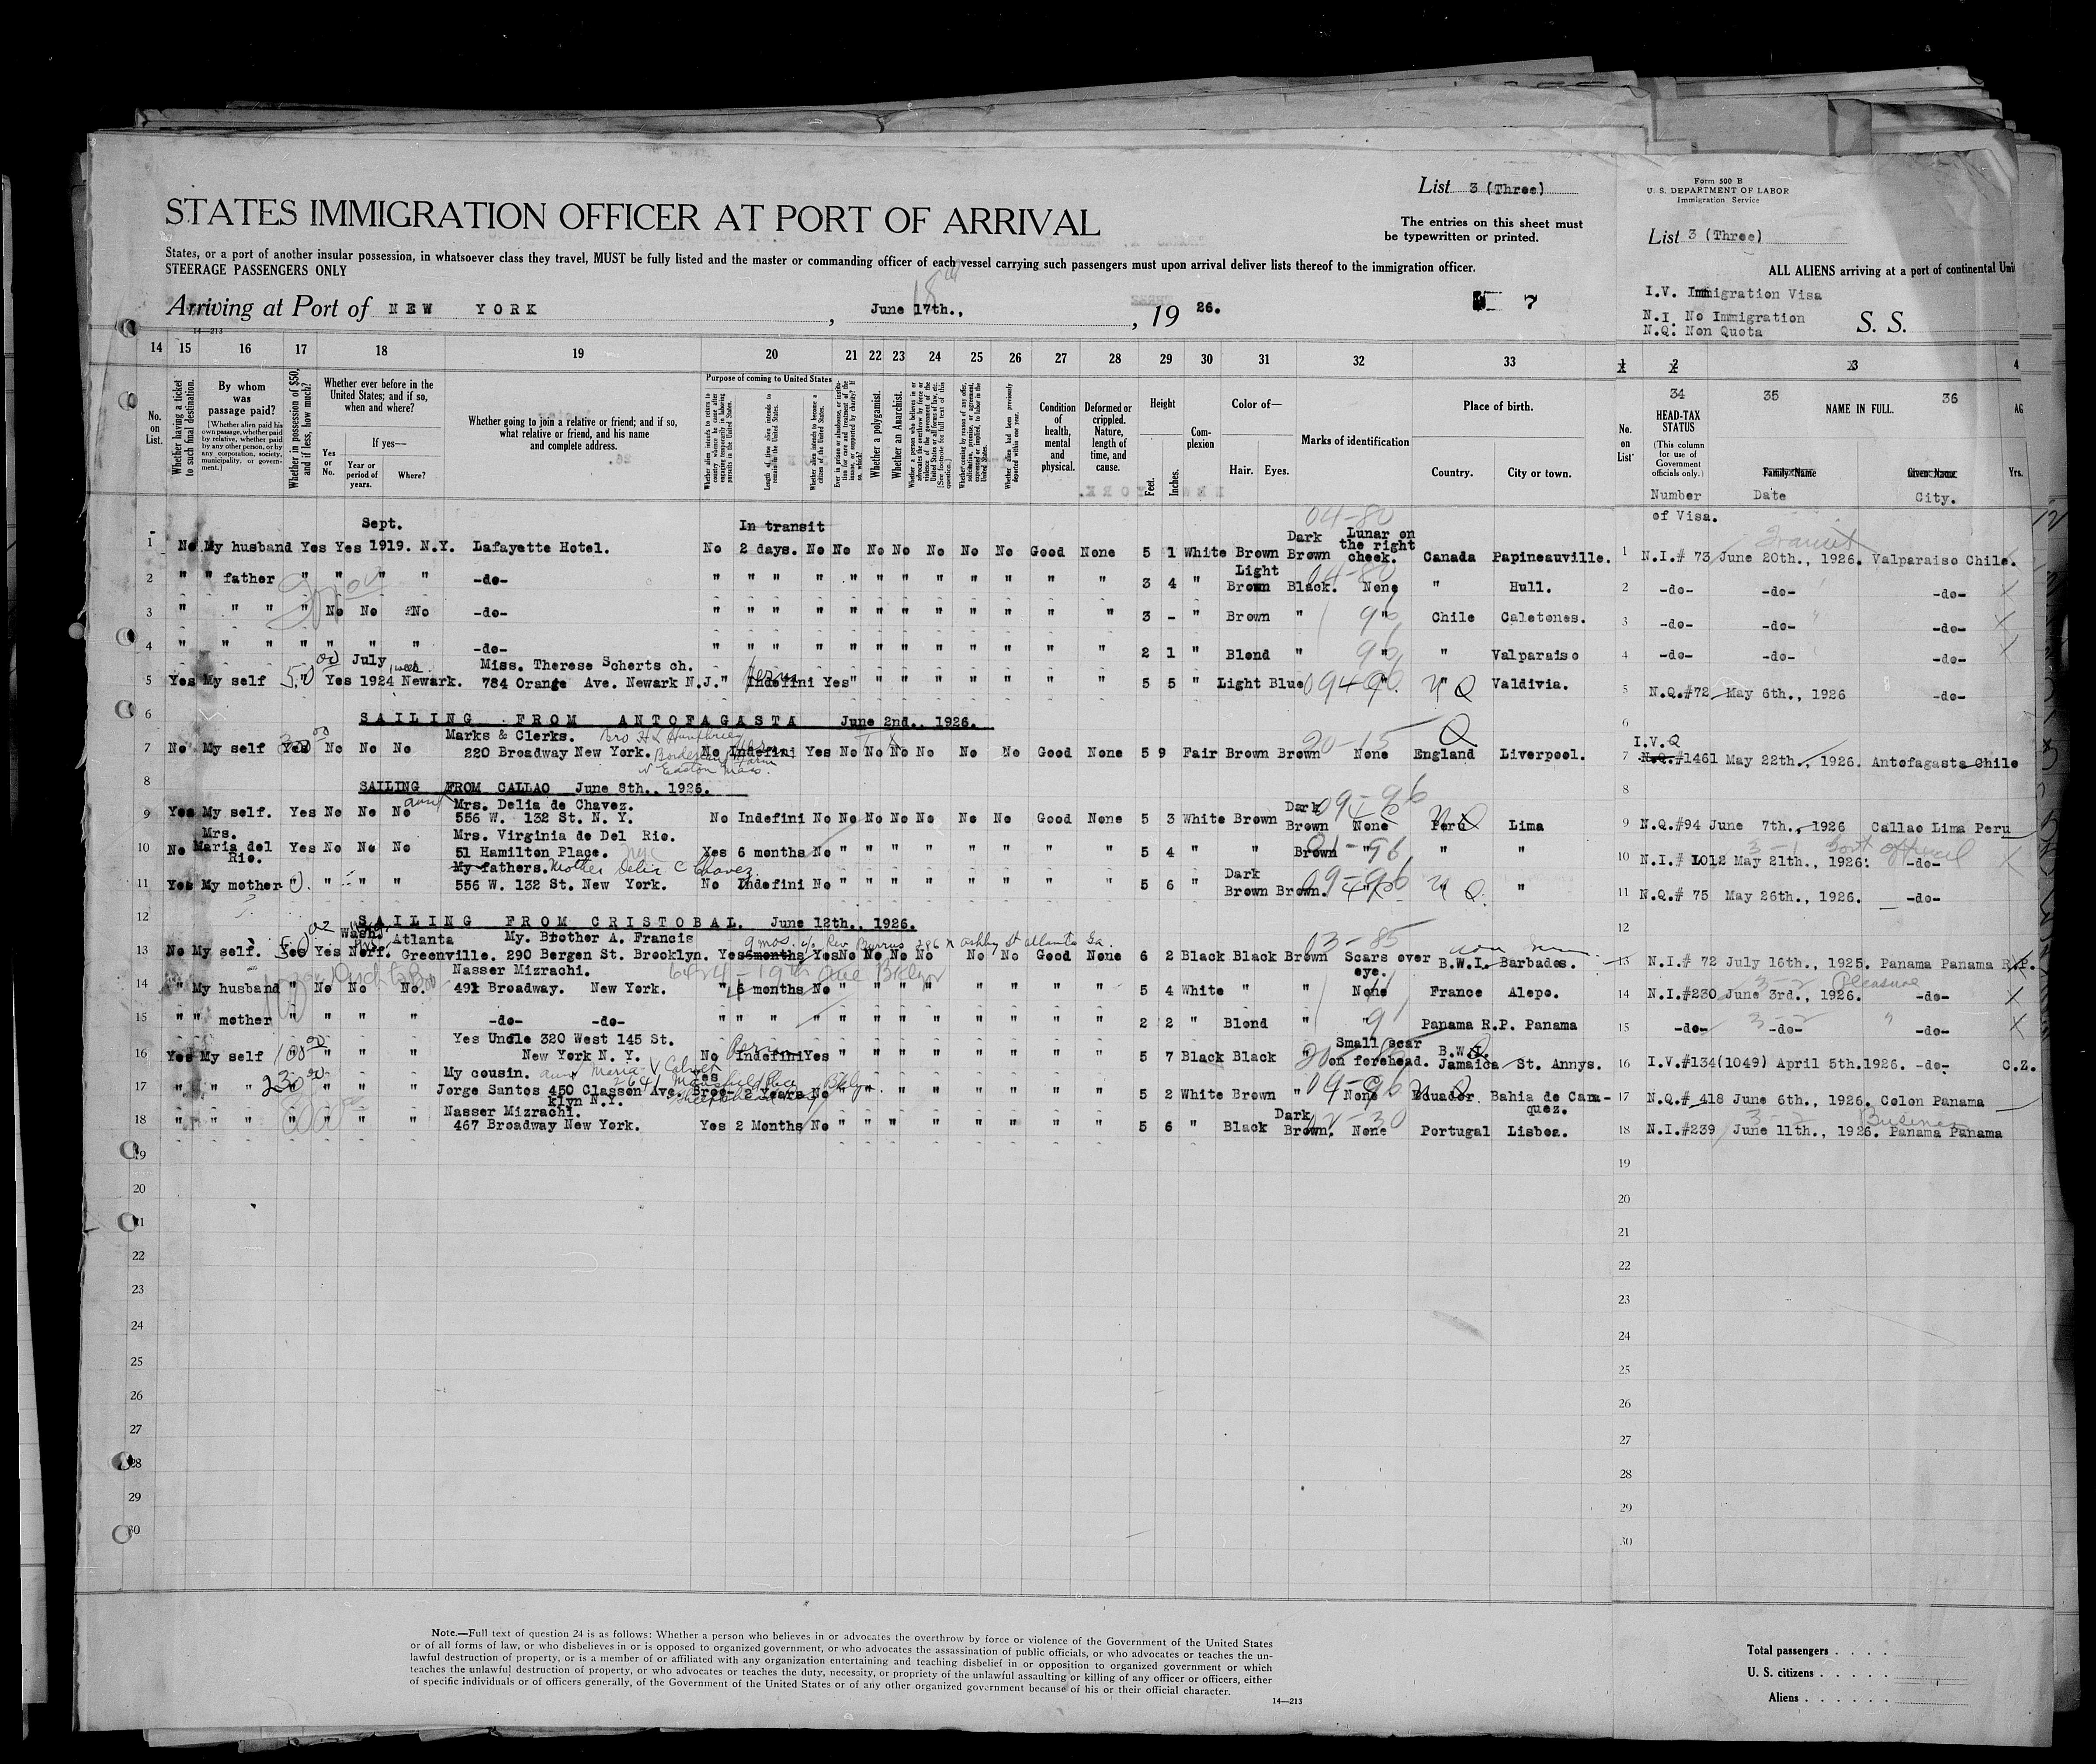 List 3 (Three)
STATES IMMIGRATION OFFICER AT PORT OF ARRIVAL
The entries on this sheet must
be typewritten or printed.
States, or a port of another insular possession, in whatsoever class they travel, MUST be fully listed and the master or commanding officer of each vessel carrying such passengers must upon arrival deliver lists thereof to the immigration officer.
STEERAGE PASSENGERS ONLY
18th
Arriving at Port of NEW YORK, June 17th., , 19 26. 7
14—213
14 15 16 17 18 19 20 21 22 23 24 25 26 27 28 29 30 31 32 33
No. on List.
Whether having a ticket to such final destination.
By whom was passage paid?
[Whether alien paid his own passage, whether paid by relative, whether paid by any other person, or by any corporation, society, municipality, or government.]
Whether in possession of $50, and if less, how much?
Whether ever before in the United States; and if so, when and where?
Yes or No.
If yes—
Year or period of years.
Where?
Whether going to join a relative or friend; and if so, what relative or friend, and his name and complete address.
Purpose of coming to United States
Length of time alien intends to remain in the United States.
Whether alien intends to become a citizen of the United States.
Whether a polygamist.
Whether an Anarchist.
Condition of health, mental and physical.
Deformed or crippled. Nature, length of time, and cause.
Height
Feet. Inches.
Complexion
Color of—
Hair. Eyes.
Marks of identification
Place of birth.
Country. City or town.
Sept. In transit 04-80 Dark Lunar on
1 No My husband Yes Yes 1919. N.Y. Lafayette Hotel. No 2 days. No No No No No No No Good None 5 1 White Brown Brown the right cheek. Canada Papineauville.
2 " " father " " " " -do- " " " " " " " " " " " " 3 4 " Light Brown Black. None " Hull.
3 " " " " No No No -do- " " " " " " " " " " " " 3 - " Brown " " Chile Caletones.
4 " " " " " " " -do- " " " " " " " " " " " " 2 1 " Blond " " " Valparaiso
July Miss. Therese Scherts ch.
5 Yes My self 50 00 Yes 1924 Newark. 784 Orange Ave. Newark N.J. " Indefini Yes " " " " " " " " 5 5 " Light Blue " N Q Valdivia.
6 SAILING FROM ANTOFAGASTA June 2nd., 1926.
Marks & Clerks. Bro H L Humphrey Q
7 No My self Yes No No No 220 Broadway New York. No Indefini Yes No No No No No No Good None 5 9 Fair Brown Brown 20-15 None England Liverpool.
N Easton Mass.
8 SAILING FROM CALLAO June 8th., 1926.
aunt Mrs. Delia de Chavez. Dark 09-96
9 Yes My self. Yes No No No 556 W. 132 St. N. Y. No Indefini No No No No No No No Good None 5 3 White Brown Brown None Peru N Q Lima
Mrs. Mrs. Virginia de Del Rio.
10 No Maria del Rio. Yes No No No 51 Hamilton Place. NYC Yes 6 months No " " " " " " " " 5 4 " " Brown " " "
My fathers. Mother Delia C Chavez Dark 09-96
11 Yes My mother 0. " " " " 556 W. 132 St. New York. No Indefini No " " " " " " " " 5 6 " Brown Brown. " N Q. "
12 SAILING FROM CRISTOBAL. June 12th., 1926.
Wash. Atlanta My. Brother A. Francis 9 mos. c/o Rev Burrus 286 N Ashby St Atlanta Ga. 03-85
13 No My self. Yes Yes Norf. Greenville. 290 Bergen St. Brooklyn. Yes 6months Yes No No No No No No Good None 6 2 Black Black Brown Scars over eye. B.W.I. Barbados.
Nasser Mizrachi. 6424-19th Ave Bklyn
14 " My husband " No No No. 491 Broadway. New York. " 6 months No " " " " " " " " 5 4 White " " None France Alepo.
15 " " mother " " " " -do- -do- " " " " " " " " " " " " 2 2 " Blond " " Panama R.P. Panama
Yes Uncle 320 West 145 St. Perm Small scar
16 Yes My self 100 00 " " " New York N. Y. No Indefini Yes " " " " " " " " 5 7 Black Black " on forehead. B.W.I. Jamaica St. Annys.
My cousin. aunt Maria V Calvet Yes
17 " " " 230 00 " " " Jorge Santos 450 Classon Ave. Broo- 2 Years No " " " " " " " 5 2 White Brown " 09-96 None Ecuador. Bahia de Cara-
klyn N.Y. quez.
Nasser Mizrachi. Dark
18 " " " " " " 467 Broadway New York. Yes 2 Months No " " " " " " " " 5 6 " Black Brown. None Portugal Lisboa.
19
20
21
22
23
24
25
26
27
28
29
30
Note.—Full text of question 24 is as follows: Whether a person who believes in or advocates the overthrow by force or violence of the Government of the United States
or of all forms of law, or who disbelieves in or is opposed to organized government, or who advocates the assassination of public officials, or who advocates or teaches the un-
lawful destruction of property, or is a member of or affiliated with any organization entertaining and teaching disbelief in or opposition to organized government or which
teaches the unlawful destruction of property, or who advocates or teaches the duty, necessity, or propriety of the unlawful assaulting or killing of any officer or officers, either
of specific individuals or of officers generally, of the Government of the United States or of any other organized government because of his or their official character.
14—213
Form 500 B
U. S. DEPARTMENT OF LABOR
Immigration Service
List 3 (Three)
ALL ALIENS arriving at a port of continental Uni
I.V. Immigration Visa
N.I. No Immigration
N.Q. Non Quota
S. S.
1 2 3 4
34 35 36
No. on List
HEAD-TAX STATUS
(This column for use of Government officials only.)
NAME IN FULL.
AG
Family Name Given Name Yrs.
Number Date City.
of Visa.
Transit
1 N.I.# 73 June 20th., 1926. Valparaiso Chile.
2 -do- -do- -do-
3 -do- -do- -do-
4 -do- -do- -do-
5 N.Q.#72 May 6th., 1926 -do-
6
I.V.Q
7 N.Q.#1461 May 22th., 1926. Antofagasta Chile
8
9 N.Q.#94 June 7th., 1926 Callao Lima Peru
3-1 Govt official
10 N.I.# 1012 May 21th., 1926. -do-
11 N.Q.# 75 May 26th., 1926. -do-
12
13 N.I.# 72 July 16th., 1925. Panama Panama R.P.
3-2 Pleasure
14 N.I.#230 June 3rd., 1926. -do-
15 -do- 3-2 -do- " -do-
16 I.V.#134(1049) April 5th.1926. -do- C.Z.
17 N.Q.# 418 June 6th., 1926. Colon Panama
3-2 Business
18 N.I.#239 June 11th., 1926. Panama Panama
19
20
21
22
23
24
25
26
27
28
29
30
Total passengers . . . .
U. S. citizens . . . . .
Aliens . . . . . .